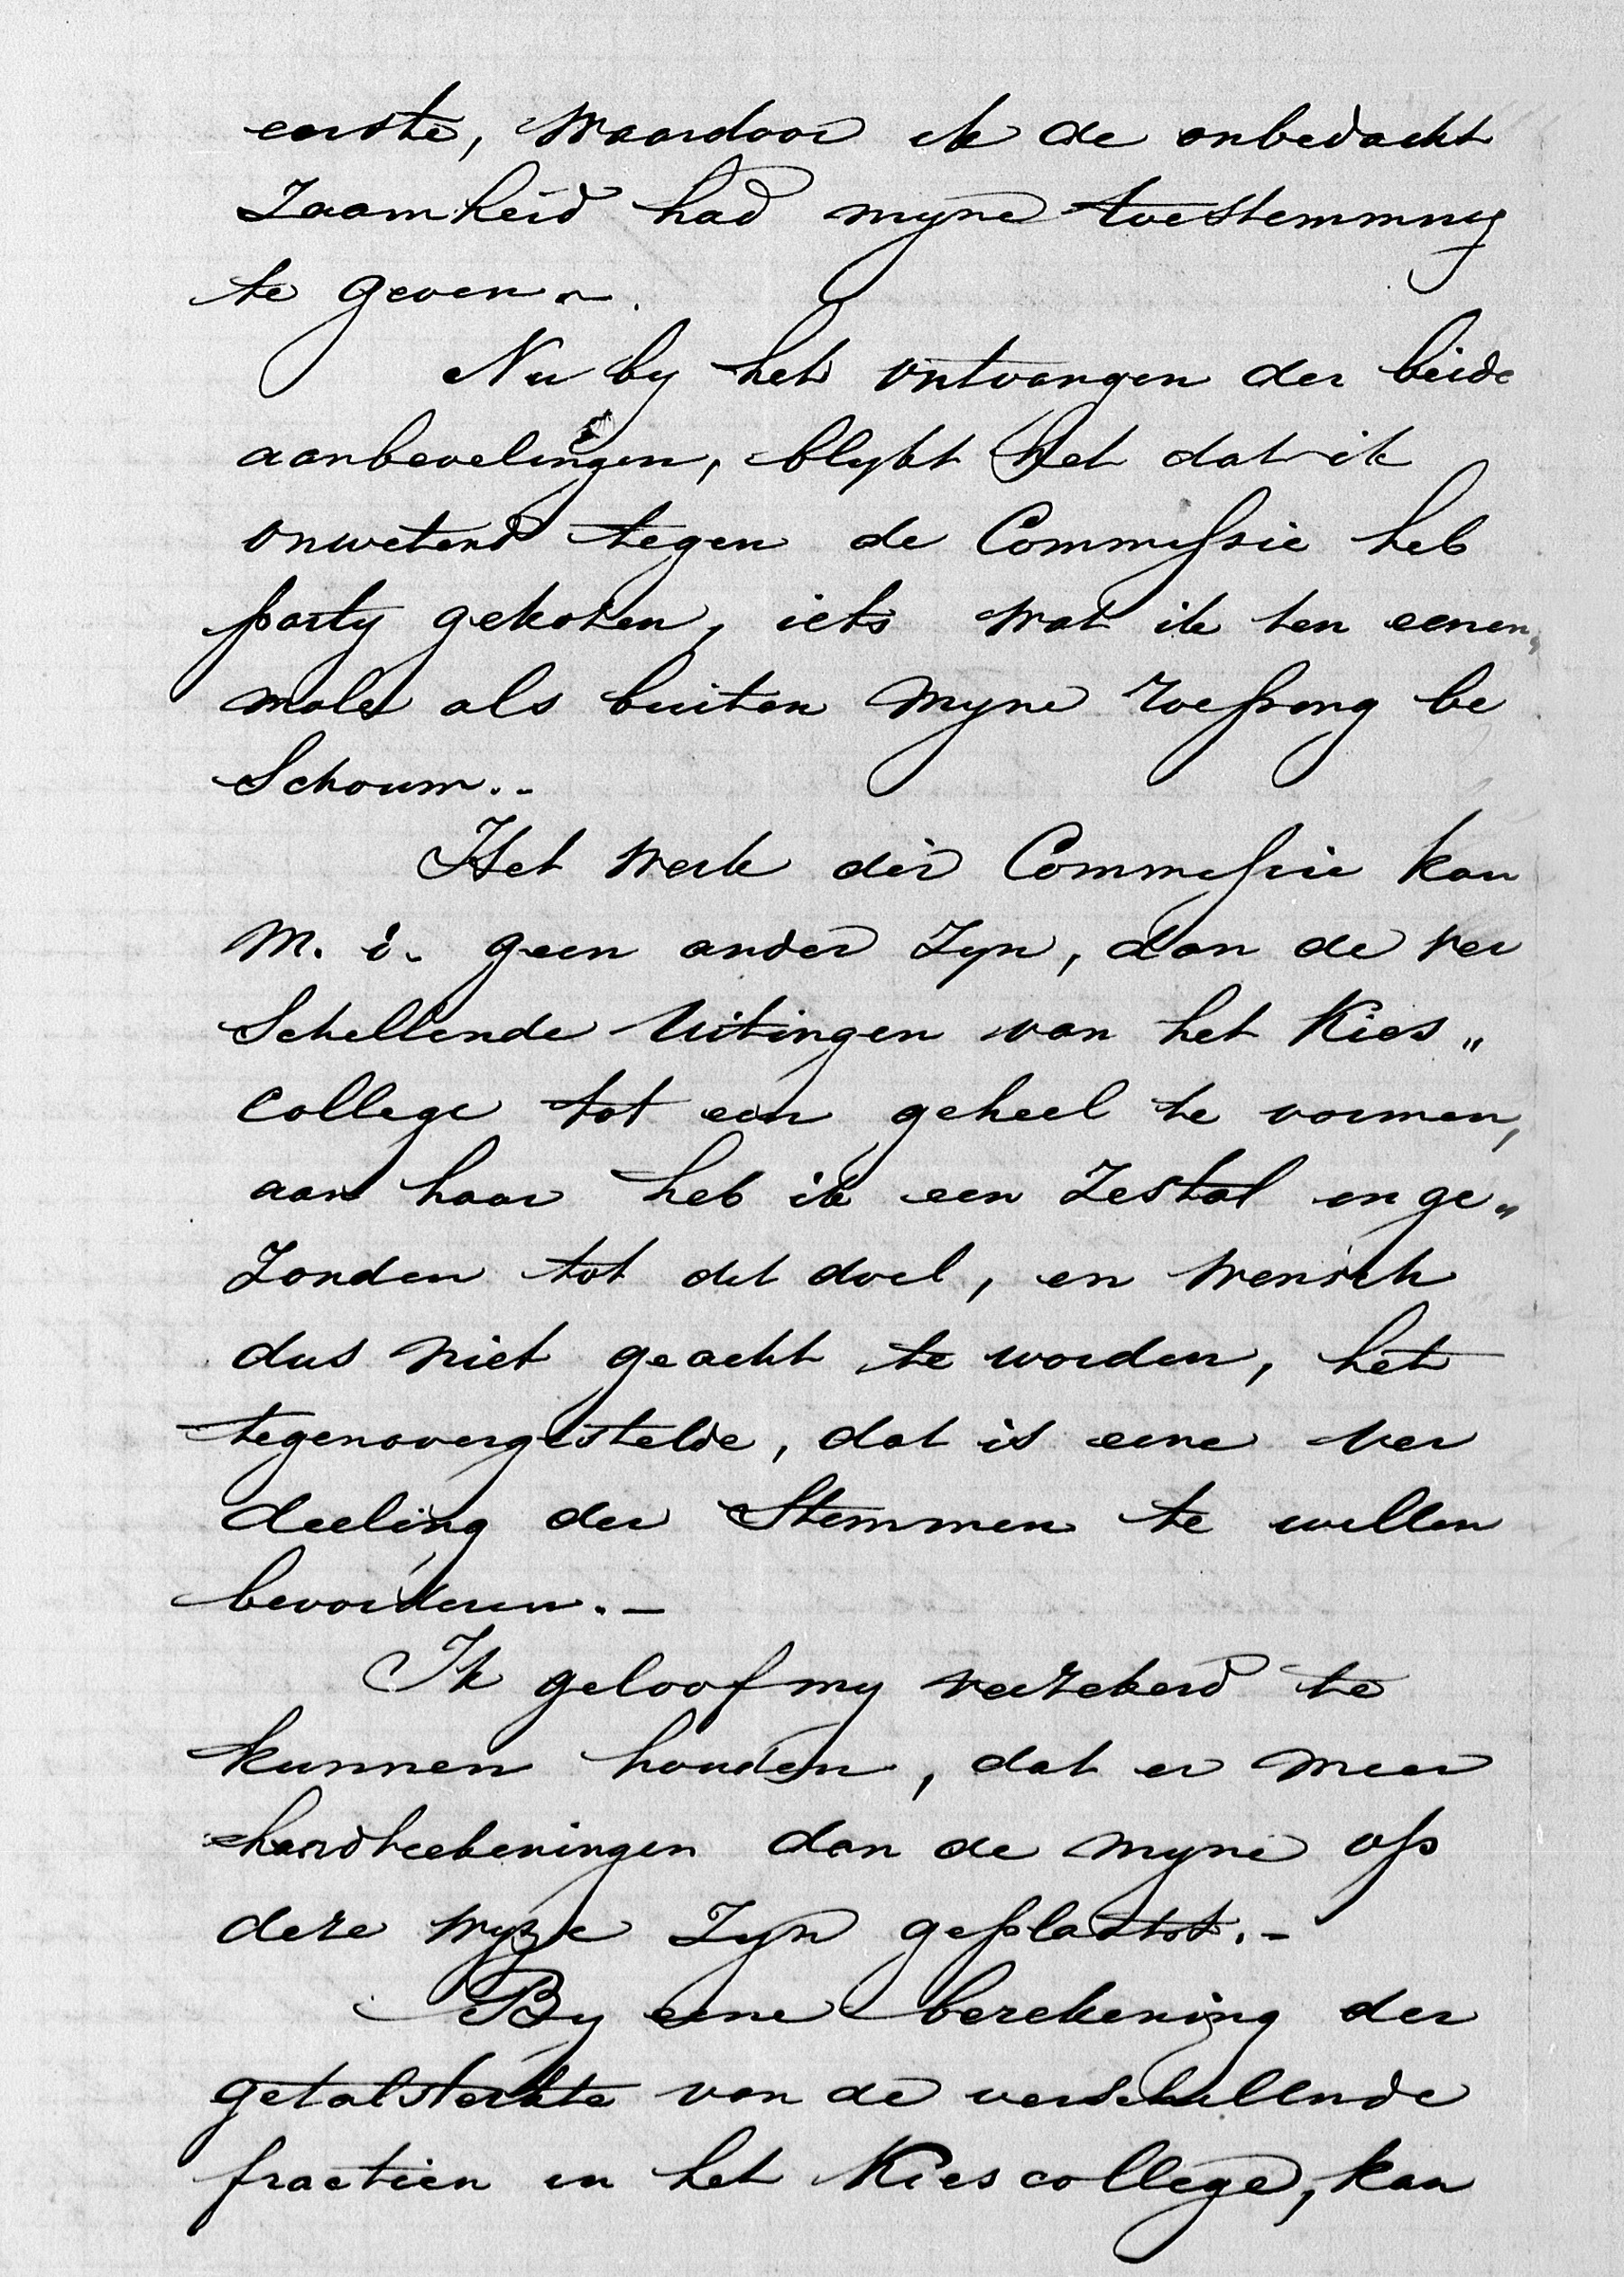 eerste, waardoor ik de onbedacht
zaamheid had myne toestemming
te geven.
Nu by het ontvangen der beide
aanbevelingen, blykt het dat ik
onwetend tegen de Commissie heb
party gekozen, iets wat ik ten eenen„
male als buiten myne roeping be
schouw..
Het werk dier Commissie kan
m. i. geen ander zyn, dan de ver
schillende uitingen van het Kies„
college tot een geheel te vormen,
aan haar heb ik een zestal inge„
zonden tot dit doel, en wensch
dus niet geacht te worden, het
tegenovergestelde, dat is eene ver
deeling der stemmen te willen
bevorderen.—
Ik geloof my verzekerd te
kunnen houden, dat er meer
handteekeningen dan de myne op
deze wyze zyn geplaatst.—
By eene berekening der
getalsterkte van de verschillende
fractien in het Kiescollege, kan